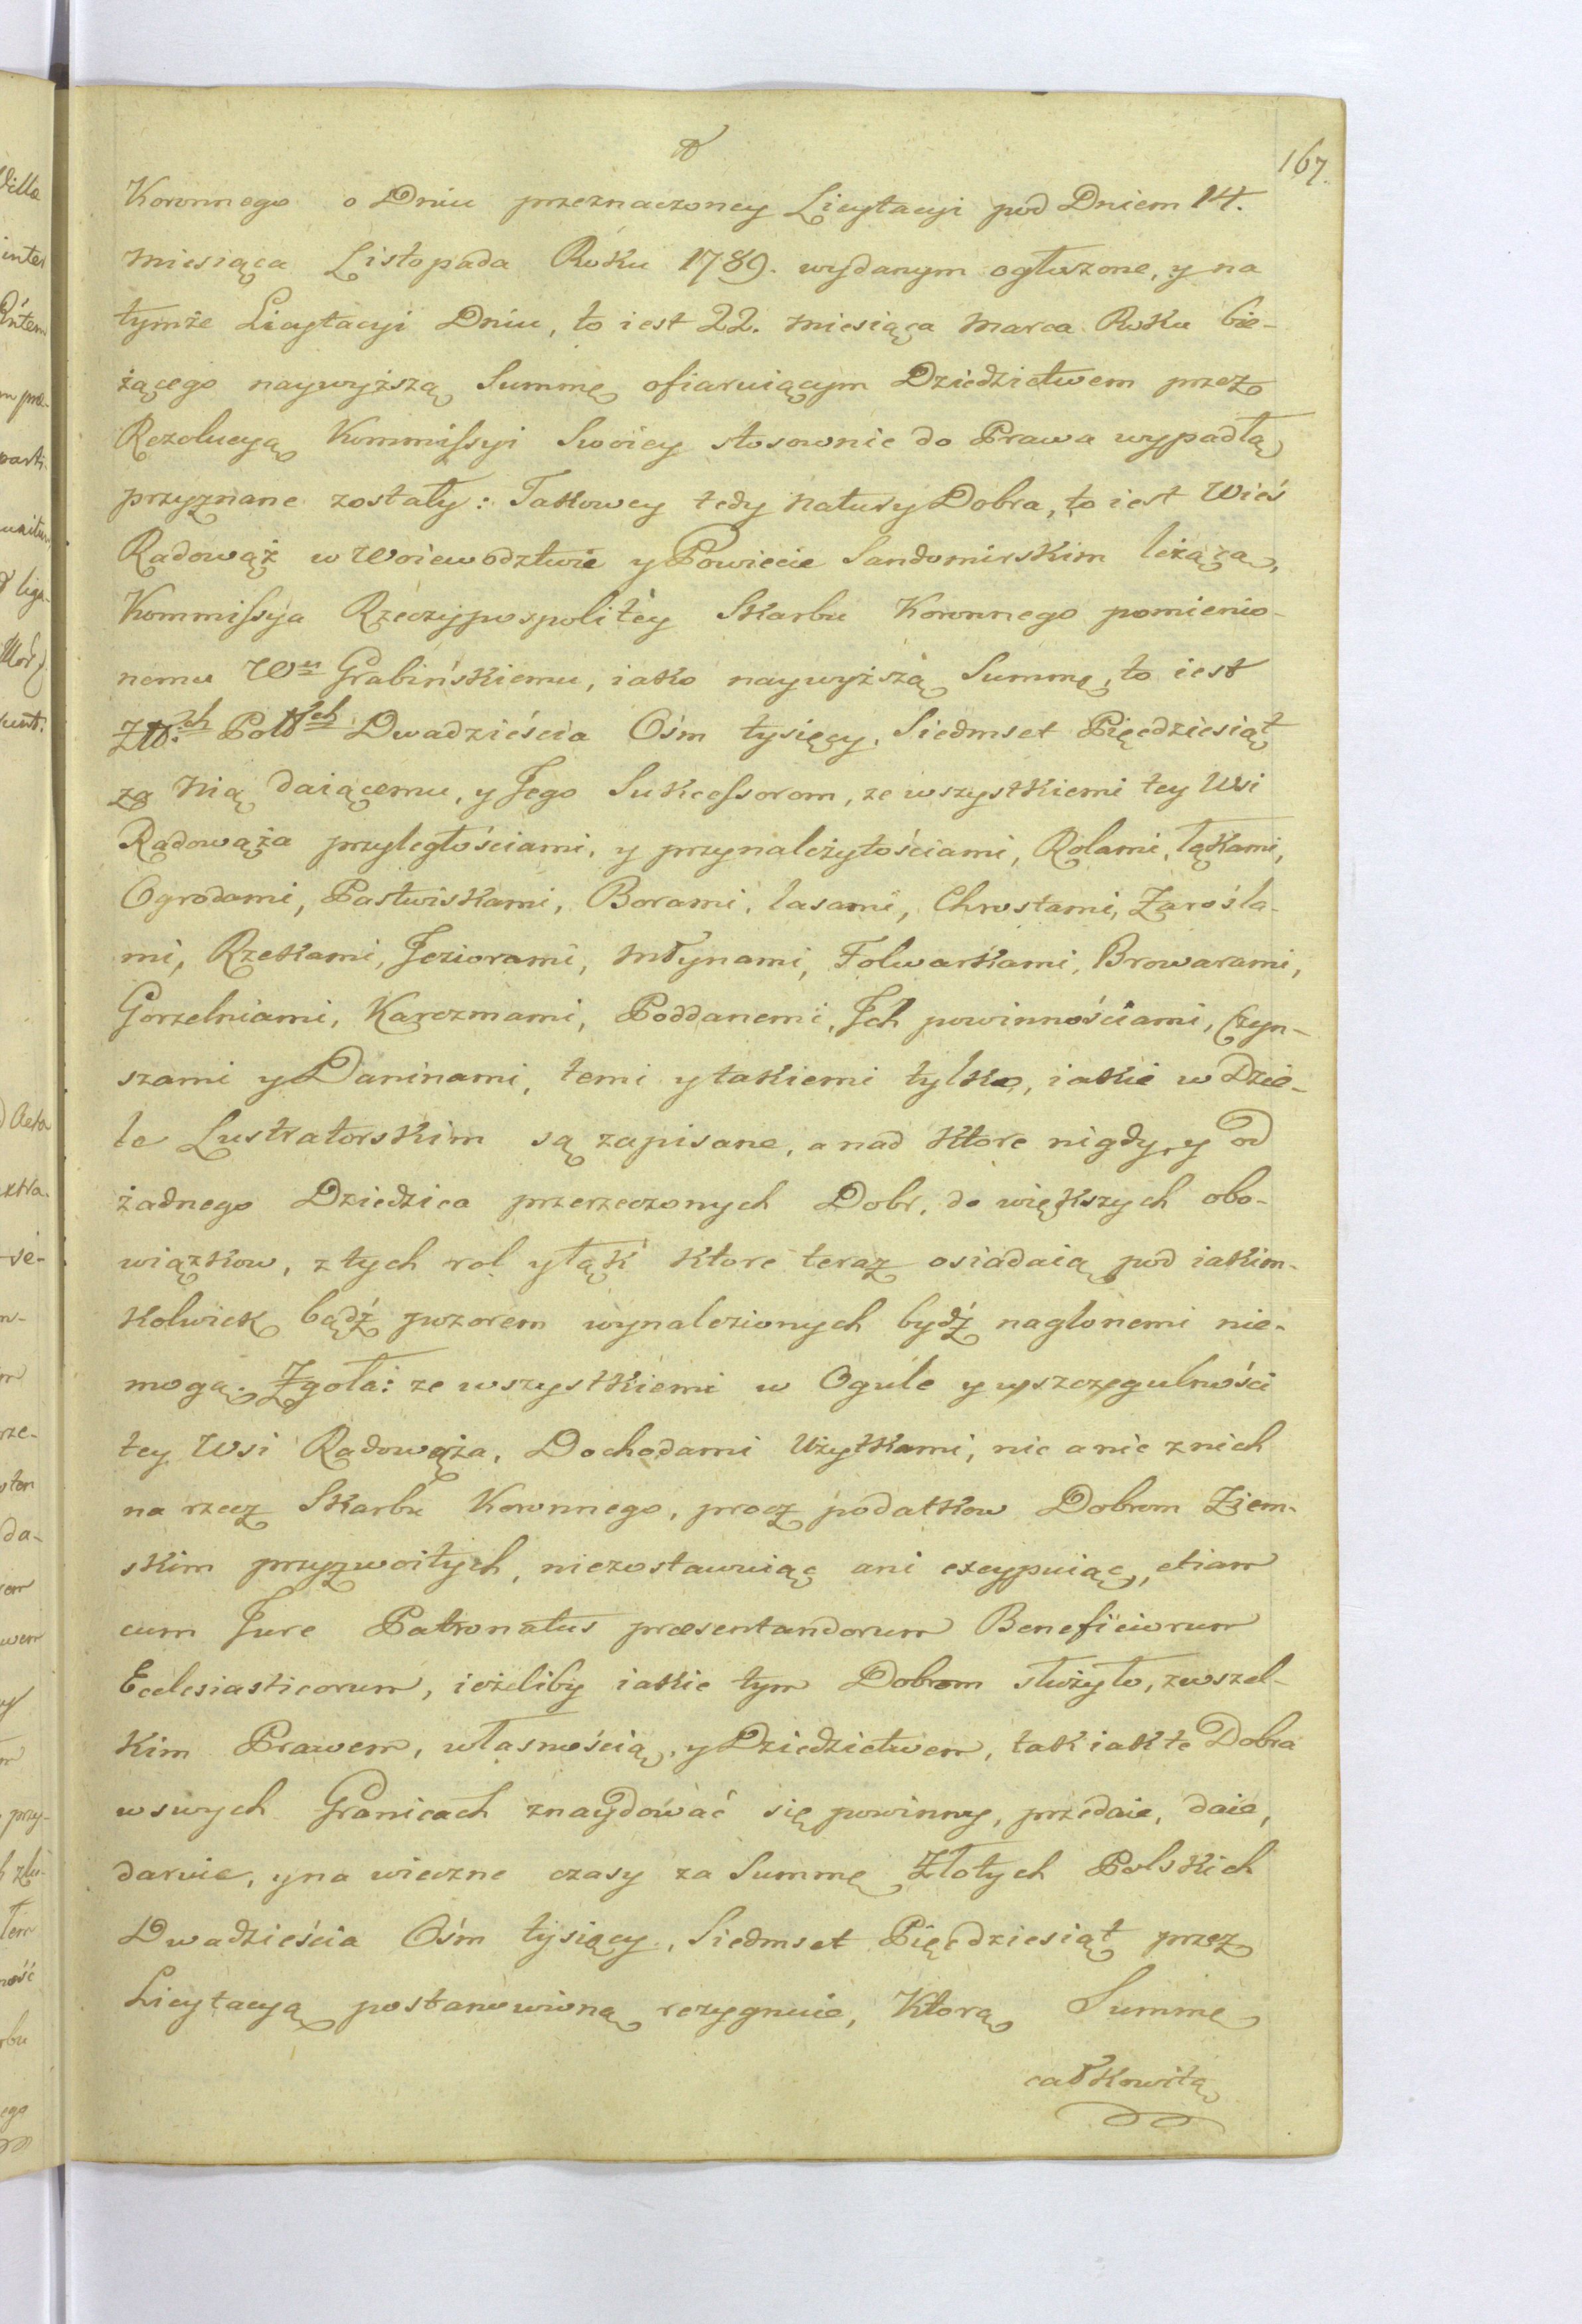 167.
Koronnego o Dniu przeznaczoney Licytacyi pod Dniem 14.
miesiąca Listopada Roku 1789. wydanym ogłoszone, y na
tymże Licytacyi Dniu, to iest 22. miesiąca Marca Roku bie-
żącego naywyższą Summę ofiaruiącym Dziedzictwem przez
Rezolucyą Kommissyi Swoiey stosownie do Prawa wypadłą
przyznane zostały: Takowey tedy natury Dobra, to iest Wieś
Radowąż w Woiewodztwie y Powiecie Sandomirskim leżąca,
Kommissya Rzeczypospolitey Skarbu Koronnego pomienio-
nemu Wmu Grabińskiemu, iako naywyższą Summę, to iest
Złł.ch Pollch Dwadzieścia Ośm tysięcy, Siedmset Pięćdziesiąt
za nią daiącemu, y Jego Sukcessorom, ze wszystkiemi tey Wsi
Radowąża przyległościami, y przynależytościami, Rolami, łąkami,
Ogrodami, Pastwiskami, Borami, lasami, Chrostami, Zarośla-
mi, Rzekami, Jeziorami, młynami, Folwarkami, Browarami,
Gorzelniami, Karczmami, Poddanemi, Jch powinnościami, Czyn-
szami y Daninami, temi y takiemi tylko, iakie w Dzie-
le Lustratorskim są zapisane, a nad ktore nigdy, y od
żadnego Dziedzica przerzeczonych Dobr, do większych obo-
wiązkow, z tych rol y łąk ktore teraz osiadaią pod iakim-
kolwiek bądź pozorem wynalezionych bydź naglonemi nie-
mogą. Zgoła: ze wszystkiemi w Ogule y wszczegulności
tey Wsi Radowąża, Dochodami Użytkami, nic a nic z nich
na rzecz Skarbu Koronnego, procz podatkow Dobrom Ziem-
skim przyzwoitych, niezostawuiąc ani excypuiąc, etiam
cum Jure Patronatus præsentandorum Beneficiorum
Ecclesiasticorum, ieżeliby iakie tym Dobrom służyło, zwszel-
kim Prawem, własnością, y Dziedzictwem, tak iak te Dobra
w swych Granicach znaydować się powinny, przedaie, daie,
daruie, y na wieczne czasy za Summę Złotych Polskich
Dwadzieścia Ośm tysięcy, Siedmset Pięćdziesiąt przez
Licytacyą postanowioną rezygnuie, Ktorą Summę
całkowitą